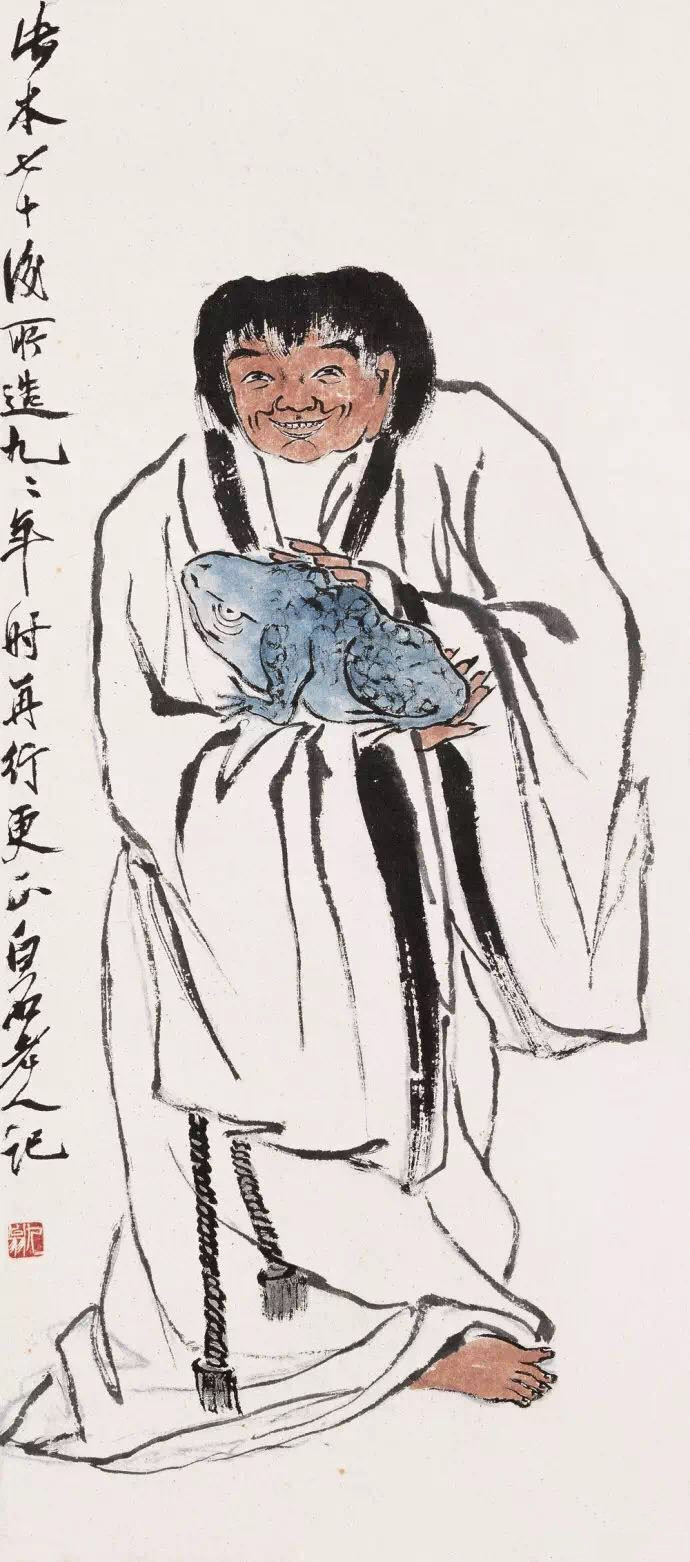 此本七十後所造九二年时再行更正白石老人记